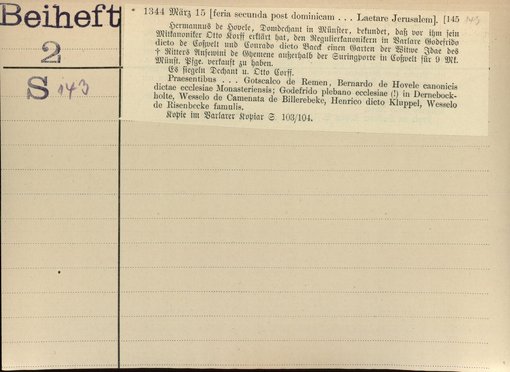 Beiheft
2
S 143
* 1344 März 15 [feria secunda post dominicam . . . Laetare Jerusalem]. [145
Hermannus de Hovele, Domdechant in Münster, bekundet, daß vor ihm sein
Mitkanoniker Otto Korff erklärt hat, den Regulierkanonikern in Varlare Godefrido
dicto de Coßvelt und Conrado dicto Baeck einen Garten der Witwe Idae des
† Ritters Anselmi de Ghemene außerhalb der Suringporte in Coßvelt für 9 Mk.
Münst. Pfge. verkauft zu haben.
Es siegeln Dechant u. Otto Corff.
Praesentibus . . . Gotscalco de Remen, Bernardo de Hovele canonicis
dictae ecclesiae Monasteriensis; Godefrido plebano ecclesiae (!) in Dernebock-
holte, Wesselo de Camenata de Billerebeke, Henrico dicto Kluppel, Wesselo
de Risenbecke famulis.
Kopie im Varlarer Kopiar S. 103/104.